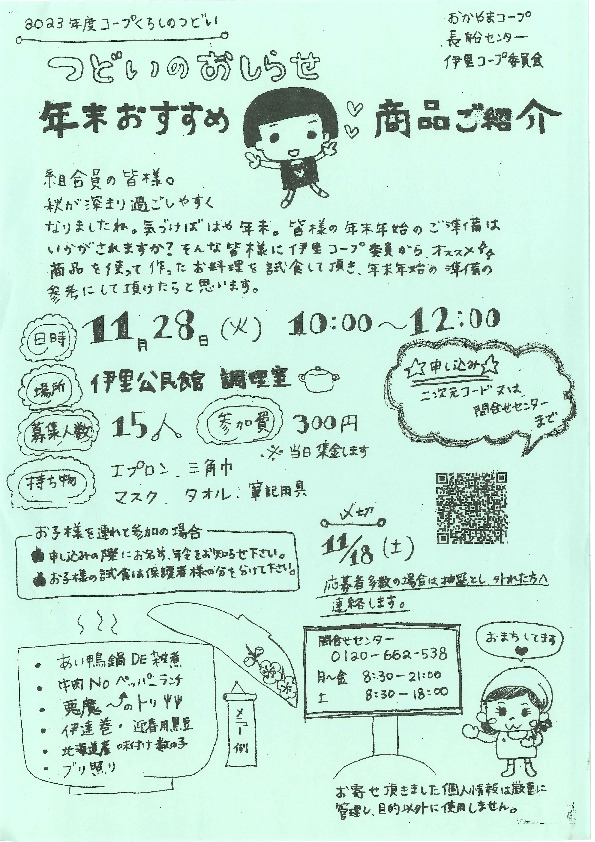 2023年度コープくらしのつどい
おかやまコープ
長船センター
伊里コープ委員会
つどいのおしらせ
年末おすすめ
商品ご紹介
組合員の皆様。
秋が深まり過ごしやすく
なりましたね。気づけばはや年末。皆様の年末年始のご準備は
いかがされますか?そんな皆様に伊里コープ委員からオススメ☆☆
商品を使って作ったお料理を試食して頂き、年末年始の準備の
参考にして頂けたらと思います。
日時 11月28日(火) 10:00〜12:00
場所 伊里公民館 調理室
募集人数 15人
参加費 300円
※当日集金します
☆申し込み☆
二次元コード又は
問合せセンター
まで
持ち物 エプロン、三角巾
マスク、タオル、筆記用具
お子様を連れて参加の場合
申し込みの際にお名前、年令をお知らせ下さい。
お子様の試食は保護者様の分を分けて下さい。
〆切
11/18(土)
応募者多数の場合は抽選とし、外れた方へ
連絡します。
・あい鴨鍋DE雑煮
・牛肉Noペッパーランチ
・悪魔〜のトリ
・伊達巻・迎春用黒豆
・北海道産味付け数の子
・ブリ照り
メニュー例
問合せセンター
0120-662-538
月〜金 8:30-21:00
土 8:30-18:00
おまちしてます
お寄せ頂きました個人情報は厳重に
管理し、目的以外に使用しません。